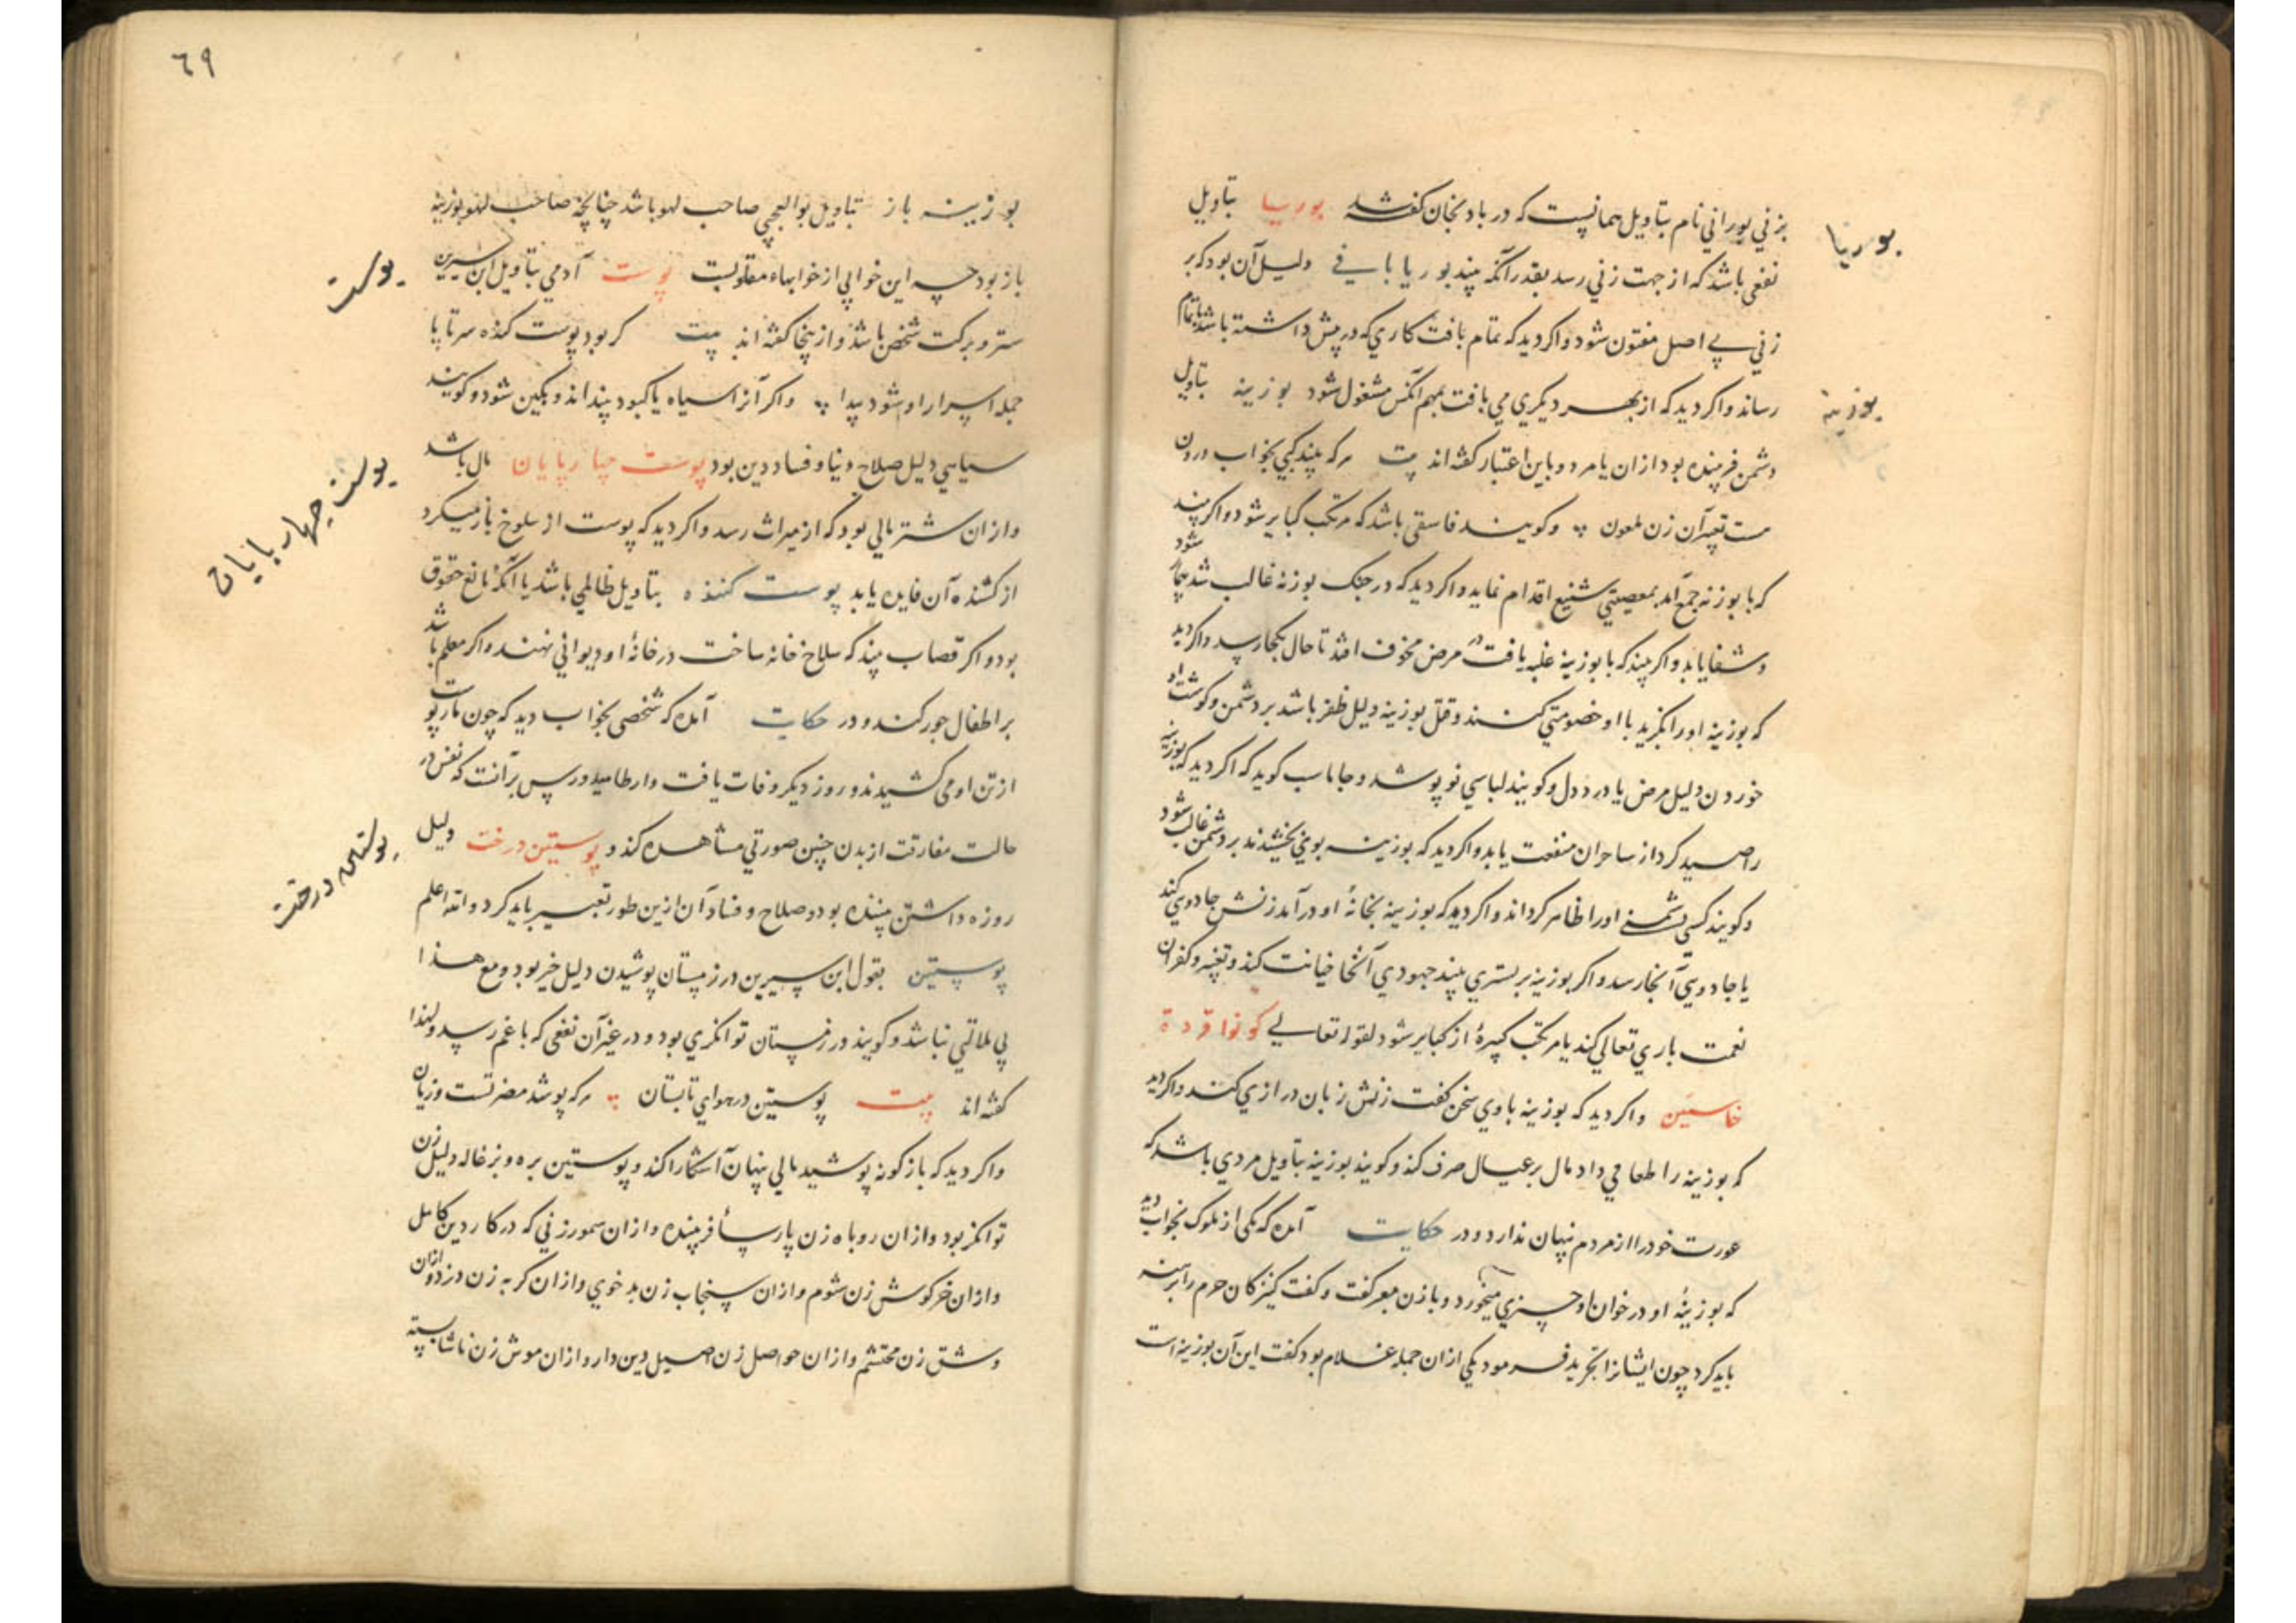 بزني بوراني نام بتاويل همانيست که در بادنجان کفته شد بوريا بتاويل
بوريا
نفعي باشد که از جهت زني رسد بقدر آنکه بيند بوريا بافي دليل آن بود که بر
زني بي اصل مفتون شود واکر ديد که تمام بافت کاري که در پيش داشته باشد باتمام
رساند واکر ديد که از بهر ديکري مي بافت بمهم آنکس مشغول شود بوزينه بتاويل
بوزينه
دشمن فريبنده بود ازان يا مرد وباين اعتبار کفته اند بيت هرکه بيند کپي بخواب درون
هست تعبير آن زن ملعون وکويند فاسقي باشد که مرتکب کباير شود واکر بيند
که با بوزنه جمع آمد بمعصيتي شنيع اقدام نمايد واکر ديد که در جنک بوزنه غالب شد بيمار شود
وشفا يابد واکر بيند که با بوزينه غلبه يافت در مرض مخوف افتد تا حال بکجا رسد واکر ديد
که بوزينه اورا بکزيد با او خصومتي کنند وقتل بوزينه دليل ظفر باشد بر دشمن وکوشت او
خوردن دليل مرض يا درد دل وکويند لباسي نو پوشد وجاماسب کويد که اکر ديد که بوزينه
را صيد کرد از ساحران منفعت يابد واکر ديد که بوزينه بوي بخشيدند بر دشمن غالب شود
وکويند کسي دشمني اورا ظاهر کرداند واکر ديد که بوزينه بخانۀ او درآمد زنش جادوي کند
يا جادويي آنجا رسد واکر بوزينه بر بستري بيند جهودي آنجا خيانت کند وکفران
نعمت باري تعالي کند يا مرتکب کبيرۀ از کباير شود لقوله تعالي کونوا قردة
خاسئين واکر ديد که بوزينه با وي سخن کفت زنش زبان درازي کند واکر ديد
که بوزينه را طعامي داد مال بر عيال صرف کند وکويند بوزينه بتاويل مردي باشد که
عورت خود را از مردم پنهان ندارد ودر حکايت آمده که يکي از ملوک بخواب ديد
که بوزينۀ او در خوان او چيزي ميخورد وبا زن معبر کفت وکفت کنيزکان حرم را برهنه
بايد کرد چون ايشانرا تجريد فرمود يکي ازان جمله غلام بود کفت اين آن بوزينه است
٦٩
بوزينه باز بتاويل بوالعجبي صاحب لهو باشد چنانچه صاحب لهو بوزينه
باز بود چه اين خوابي از خوابهاء مقلوبست پوست آدمي بتاويل ابن سيرين
پوست
ستر وبرکت شخص باشد وازينجا کفته اند بيت کر بود پوست کنده سر تا پا
جمله اسرار او شود پيدا واکر آنرا سياه يا کبود بيند اندوهکين شود وکويند
سياهي دليل صلاح دنيا وفساد دين بود پوست چهارپايان مال باشد
پوست چهار پايان
وازان شتر مالي بود که از ميراث رسد واکر ديد که پوست از سلوخ باز ميکرد
از کشنده آن فايده يابد پوست کننده بتاويل ظالمي باشد يا آنکه مانع حقوق
بود واکر قصاب بيند که سلاخ خانه ساخت در خانۀ او ديواني نهند واکر معلم باشد
بر اطفال جور کند ودر حکايت آمده که شخصي بخواب ديد که چون مار پوست
از تن او مي کشيدند و روز ديکر وفات يافت وارطاميدورس برآنست که نفس در
حالت مفارقت از بدن چنين صورتي مشاهده کند و پوستين درخت دليل
پوستين درخت
روزه داشتن بيننده بود وصلاح وفساد آن ازين طور تعبير بايد کرد والله اعلم
پوستين بقول ابن سيرين در زمستان پوشيدن دليل خير بود ومع هذا
بي ملالتي نباشد وکويند در زمستان توانکري بود ودر غير آن نفعي که با غم رسد ولهذا
کفته اند بيت پوستين در هواي تابستان هرکه پوشد مضرتست وزيان
واکر ديد که بازکونه پوشيد مالي پنهان آشکارا کند وپوستين بره وبزغاله دليل زن
توانکر بود وازان روباه زن پارسا فريبنده وازان سمور زني که در کار دين کامل
وازان خرکوش زن شوم وازان سنجاب زن بد خوي وازان کربه زن دزد وازان
وشق زن محتشم وازان حواصل زن اصيل دين دار وازان موش زن ناشايسته